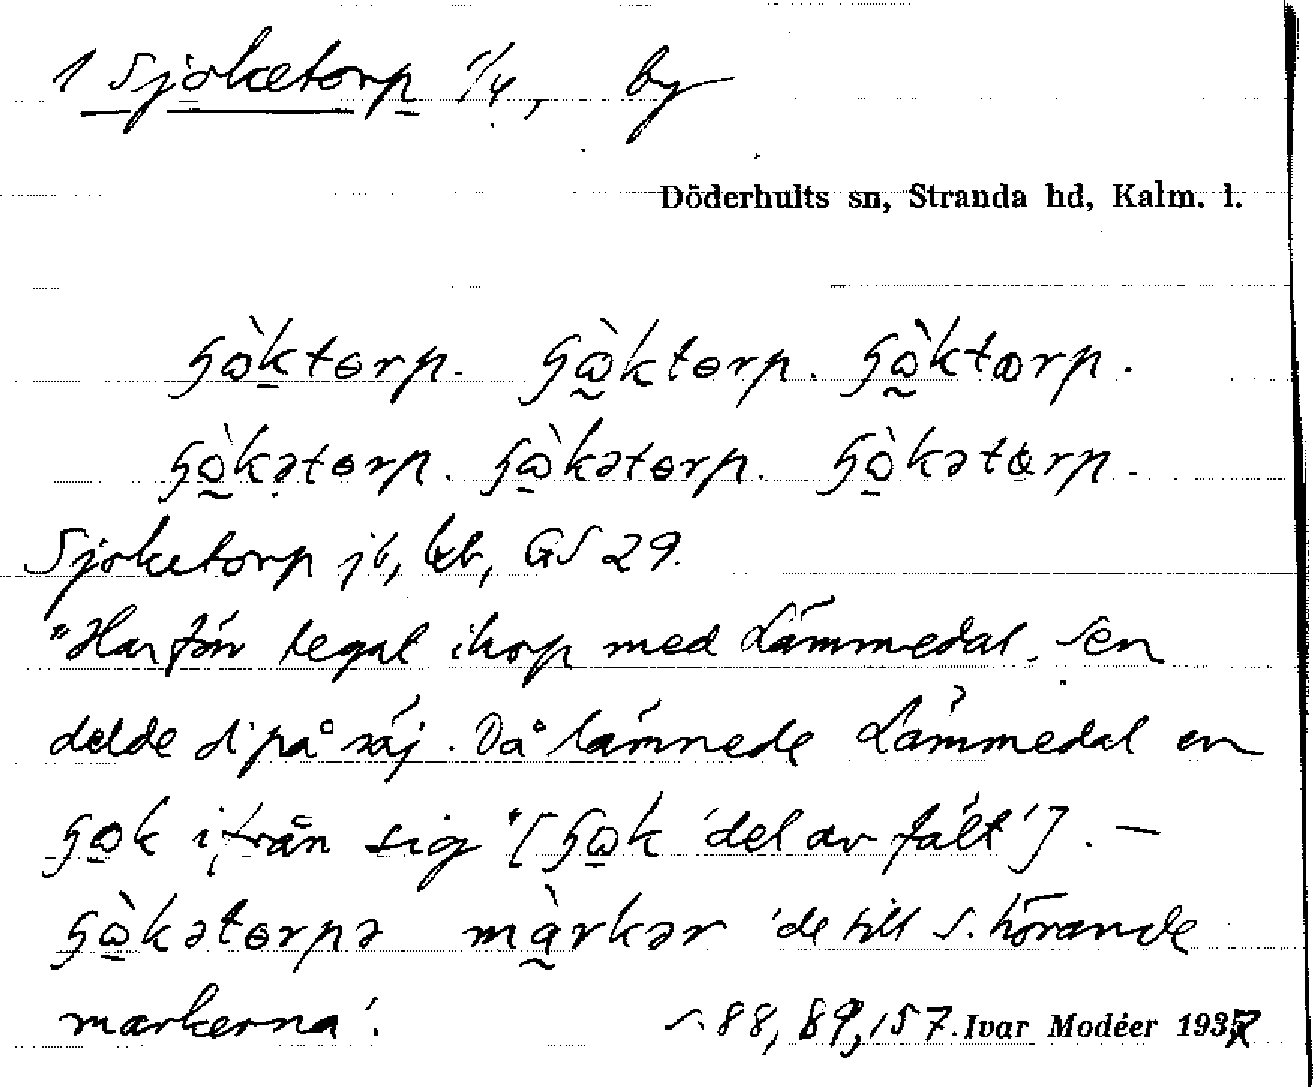 1 Sjoketorp 1/4, by
Döderhults sn, Stranda hd, Kalm. l.
ɧò̲ktɵrp. ɧò̰ktɵrp. ɧò̰ktɔrp.
ɧò̰kətɵrp. ɧò̲kətɵrp. ɧò̲kətɵrp.
Sjoketorp jb, GS 29.
"Har förr legat ihop med Lämmedal. Sen
delde di på säj. Då lämnede Lämmedal en
ɧo̲k ifrån sig" [ɧo̲k 'del av fält']. —
ɧò̲kətɵrpə mà̰rkər 'de till S. hörande
markerna'.
s. 88, 89, 157. Ivar Modéer 1937